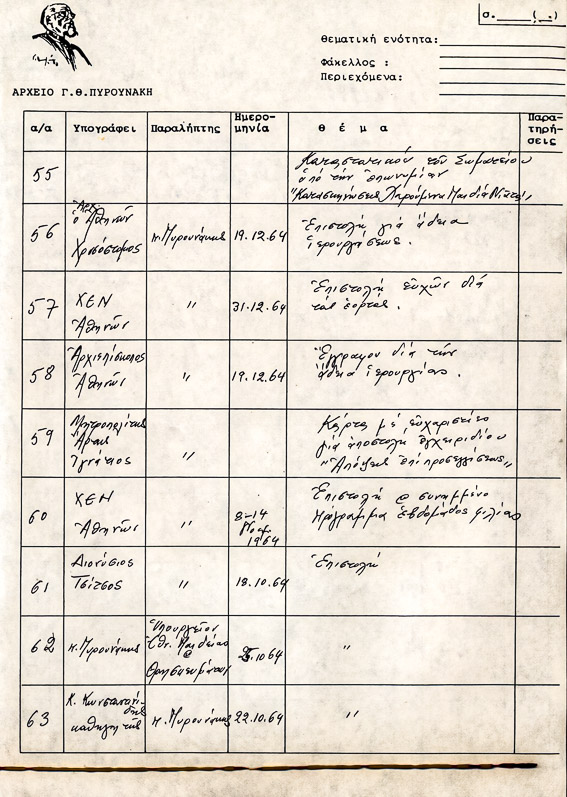 σ. ( . )
θεματική ενότητα:
Φάκελλος :
Περιεχόμενα:
ΑΡΧΕΙΟ Γ.Θ.ΠΥΡΟΥΝΑΚΗ
α/α Υπογράφει Παραλήπτης Ημερο-μηνία θ έ μ α Παρα-τηρή-σεις
55 Καταστατικόν τοῦ Σωματείου
ὑπό τήν ἐπωνυμίαν
"Κατασκηνώσεις Χαρούμενα Παιδιά
56 ὁ Ἀρχ. Ἀθηνῶν
Χρυσόστομος π. Πυρουνάκης 19.12.64 Ἐπιστολή γιά ἄδεια
ἱερουργήσεως.
57 ΧΕΝ
Ἀθηνῶν " 31.12.64 Ἐπιστολή εὐχῶν διά
τάς ἑορτάς.
58 Ἀρχιεπίσκοπος
Ἀθηνῶν " 19.12.64 Ἔγγραφον διά τήν
ἄδεια ἱερουργίας.
59 Μητροπολίτης
Ἄρτης
Ἰγνάτιος " Κάρτα μέ εὐχαριστίες
γιά ἀποστολή ἐγχειριδίου
"Ἀπόψεις ἐπί προσεγγίσεως"
60 ΧΕΝ
Ἀθηνῶν " 8-14
Νοεμ.
1964 Ἐπιστολή συναμμένο
πρόγραμμα ἑβδομάδος φιλίας
61 Διονύσιος
Τσίτσος " 18.10.64 Ἐπιστολή
62 π. Πυρουνάκης Ὑπουργεῖον
Ἐθν. Παιδείας
Θρησκευμάτων .10.64 "
63 Κ. Κωνσταντινίδης
καθηγητής π. Πυρουνάκης 22.10.64 "